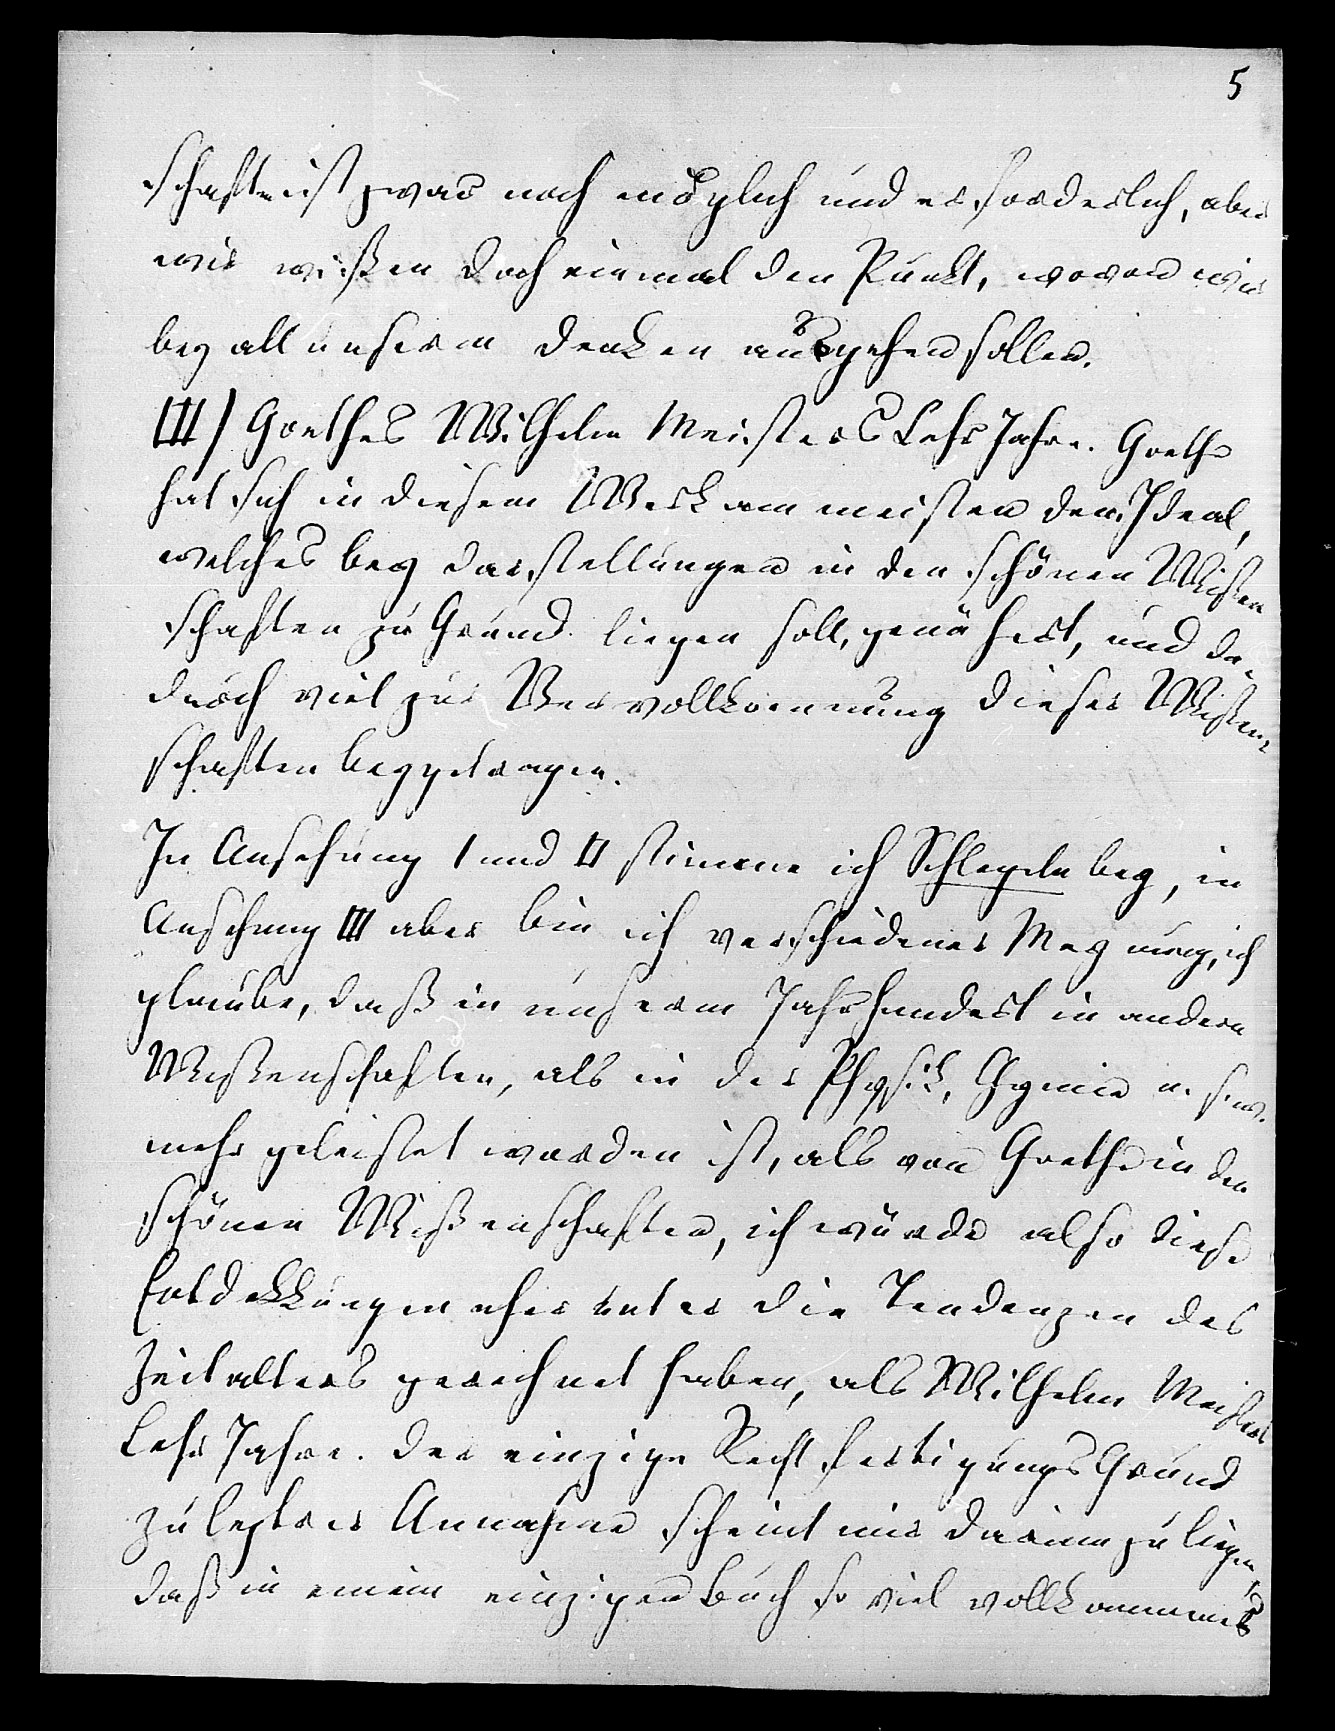 5
schaften ist zwar noch möglich und erforderlich, aber
wir wißen doch einmal den Punkt, wovon wir
bey all unserm Denken ausgehen sollen.
III) Goethes Wilhelm Meisters LehrJahre. Goethe
hat sich in diesem Werk am meisten dem Ideal,
welches bey Darstellungen in den schönen Wißen
schaften zu Grund liegen soll, genähert, und da-
durch viel zur Vervollkommnung dieser Wißen-
schaften beygetragen.
In Ansehung I und II stimme ich Schlegeln bey, in
Ansehung III aber bin ich verschiedener Meynung, ich
glaube, daß in unserm Jahrhundert in andern
Wißenschaften, als in der Physik, Chymie u. s. w.
mehr geleistet worden ist, als von Goethe in den
schönen Wißenschaften, ich würde also diese
Entdekkungen eher unter die Tendenzen des
Zeitalters gerechnet haben, als Wilhelm Meisters
LehrJahre. Der einzige RechtfertigungsGrund
zu lezterer Annahme scheint mir darinn zu liegen,
daß in einem einzigen Buch so viel vollkommnes